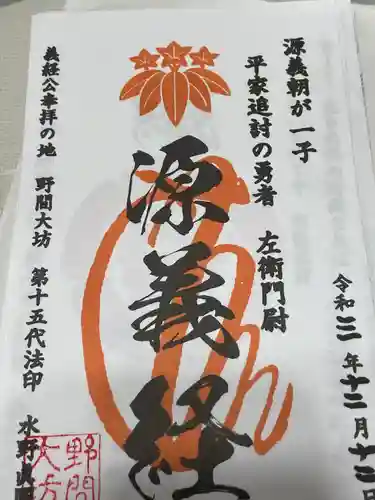 源義朝が一子
平家追討の勇者 左衛門尉
源義経
義経公奉拝の地 野間大坊 第十五代法印 水野
令和三年十二月十二日
野間
大坊